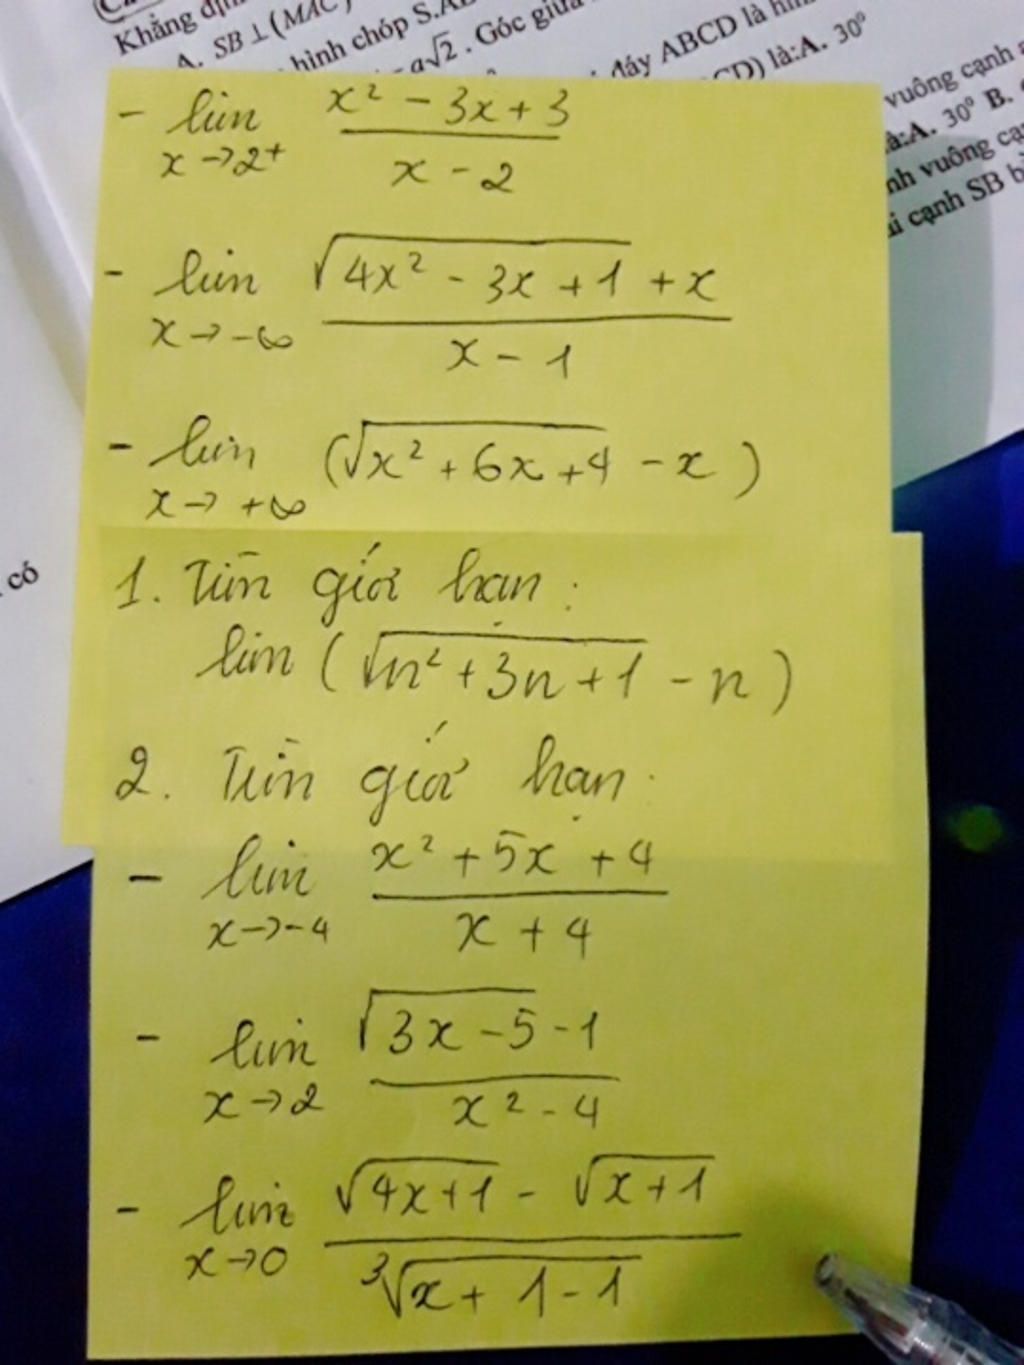 Khẳng định
A. SB ⊥ (MAC)
hình chóp S.AB
a√2 . Góc giữa
đáy ABCD là hình
CD) là:A. 30°
vuông cạnh a
là:A. 30° B.
vuông cạ
cạnh SB b
có
- lim x→2+ (x² - 3x + 3)/(x - 2)
- lim x→-∞ (√(4x² - 3x + 1) + x)/(x - 1)
- lim x→+∞ (√(x² + 6x + 4) - x)
1. Tìm giới hạn :
lim (√(n² + 3n + 1) - n)
2. Tìm giới hạn.
- lim x→-4 (x² + 5x + 4)/(x + 4)
- lim x→2 (√(3x - 5) - 1)/(x² - 4)
- lim x→0 (√(4x+1) - √(x+1))/∛(x + 1 - 1)